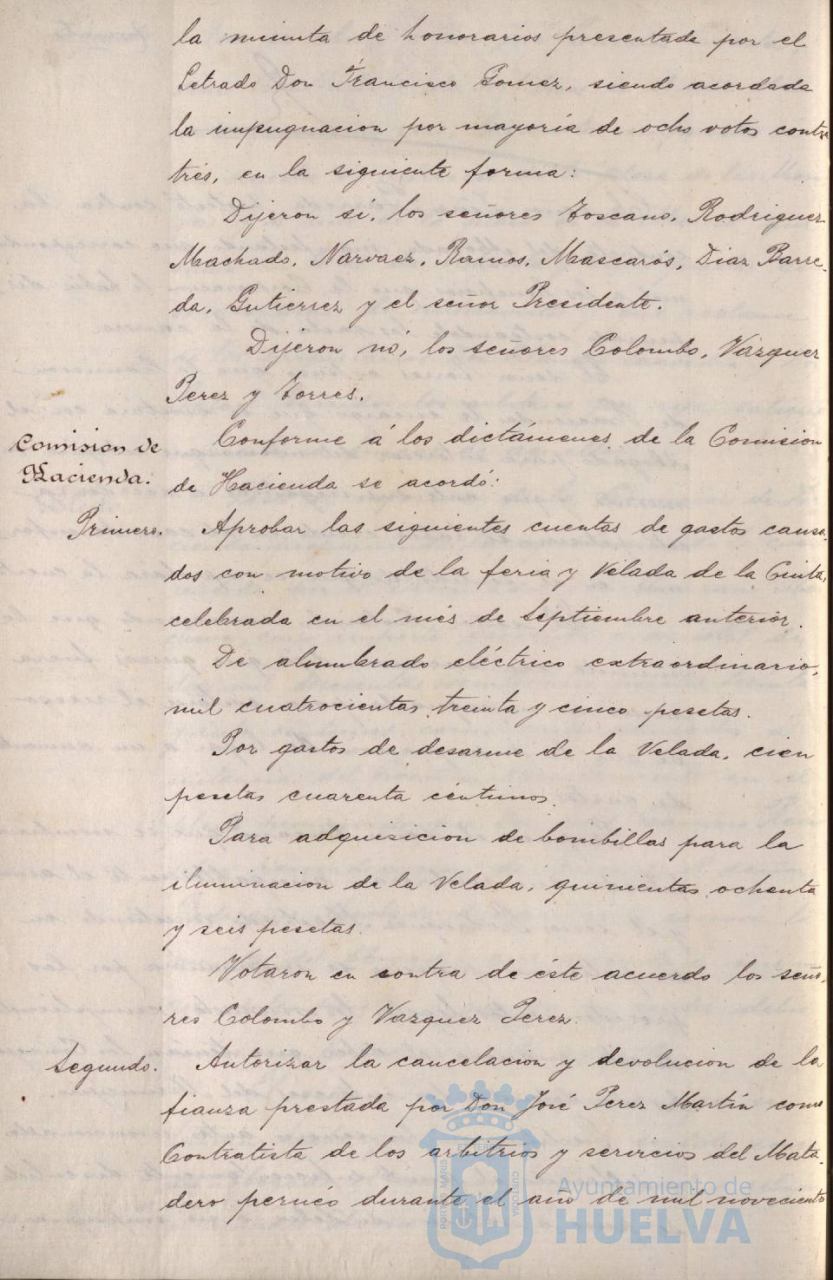 la minuta de honorarios presentada por el
Letrado Don Francisco Gomez, siendo acordada
la impugnacion por mayoría de ocho votos contra
tres, en la siguiente forma:
Dijeron sí, los señores Toscano, Rodriguez
Machado, Narvaez, Ramos, Mascarós, Diaz Barre-
da, Gutierrez y el señor Presidente.
Dijeron nó, los señores Colombo, Vazquez
Perez y Torres.
Comision de
Hacienda.
Conforme á los dictámenes de la Comision
de Hacienda se acordó:
Primero.
Aprobar las siguientes cuentas de gastos causa-
dos con motivo de la feria y Velada de la Cinta,
celebrada en el més de Septiembre anterior.
De alumbrado eléctrico extraordinario,
mil cuatrocientas treinta y cinco pesetas.
Por gastos de desarme de la Velada, cien
pesetas cuarenta céntimos.
Para adquisicion de bombillas para la
iluminacion de la Velada, quinientas ochenta
y seis pesetas.
Votaron en contra de éste acuerdo los seño-
res Colombo y Vazquez Perez.
Segundo.
Autorizar la cancelacion y devolucion de la
fianza prestada por Don José Perez Martín como
Contratista de los arbitrios y servicios del Mata-
dero durante el año de mil novecientos
Ayuntamiento de
HUELVA